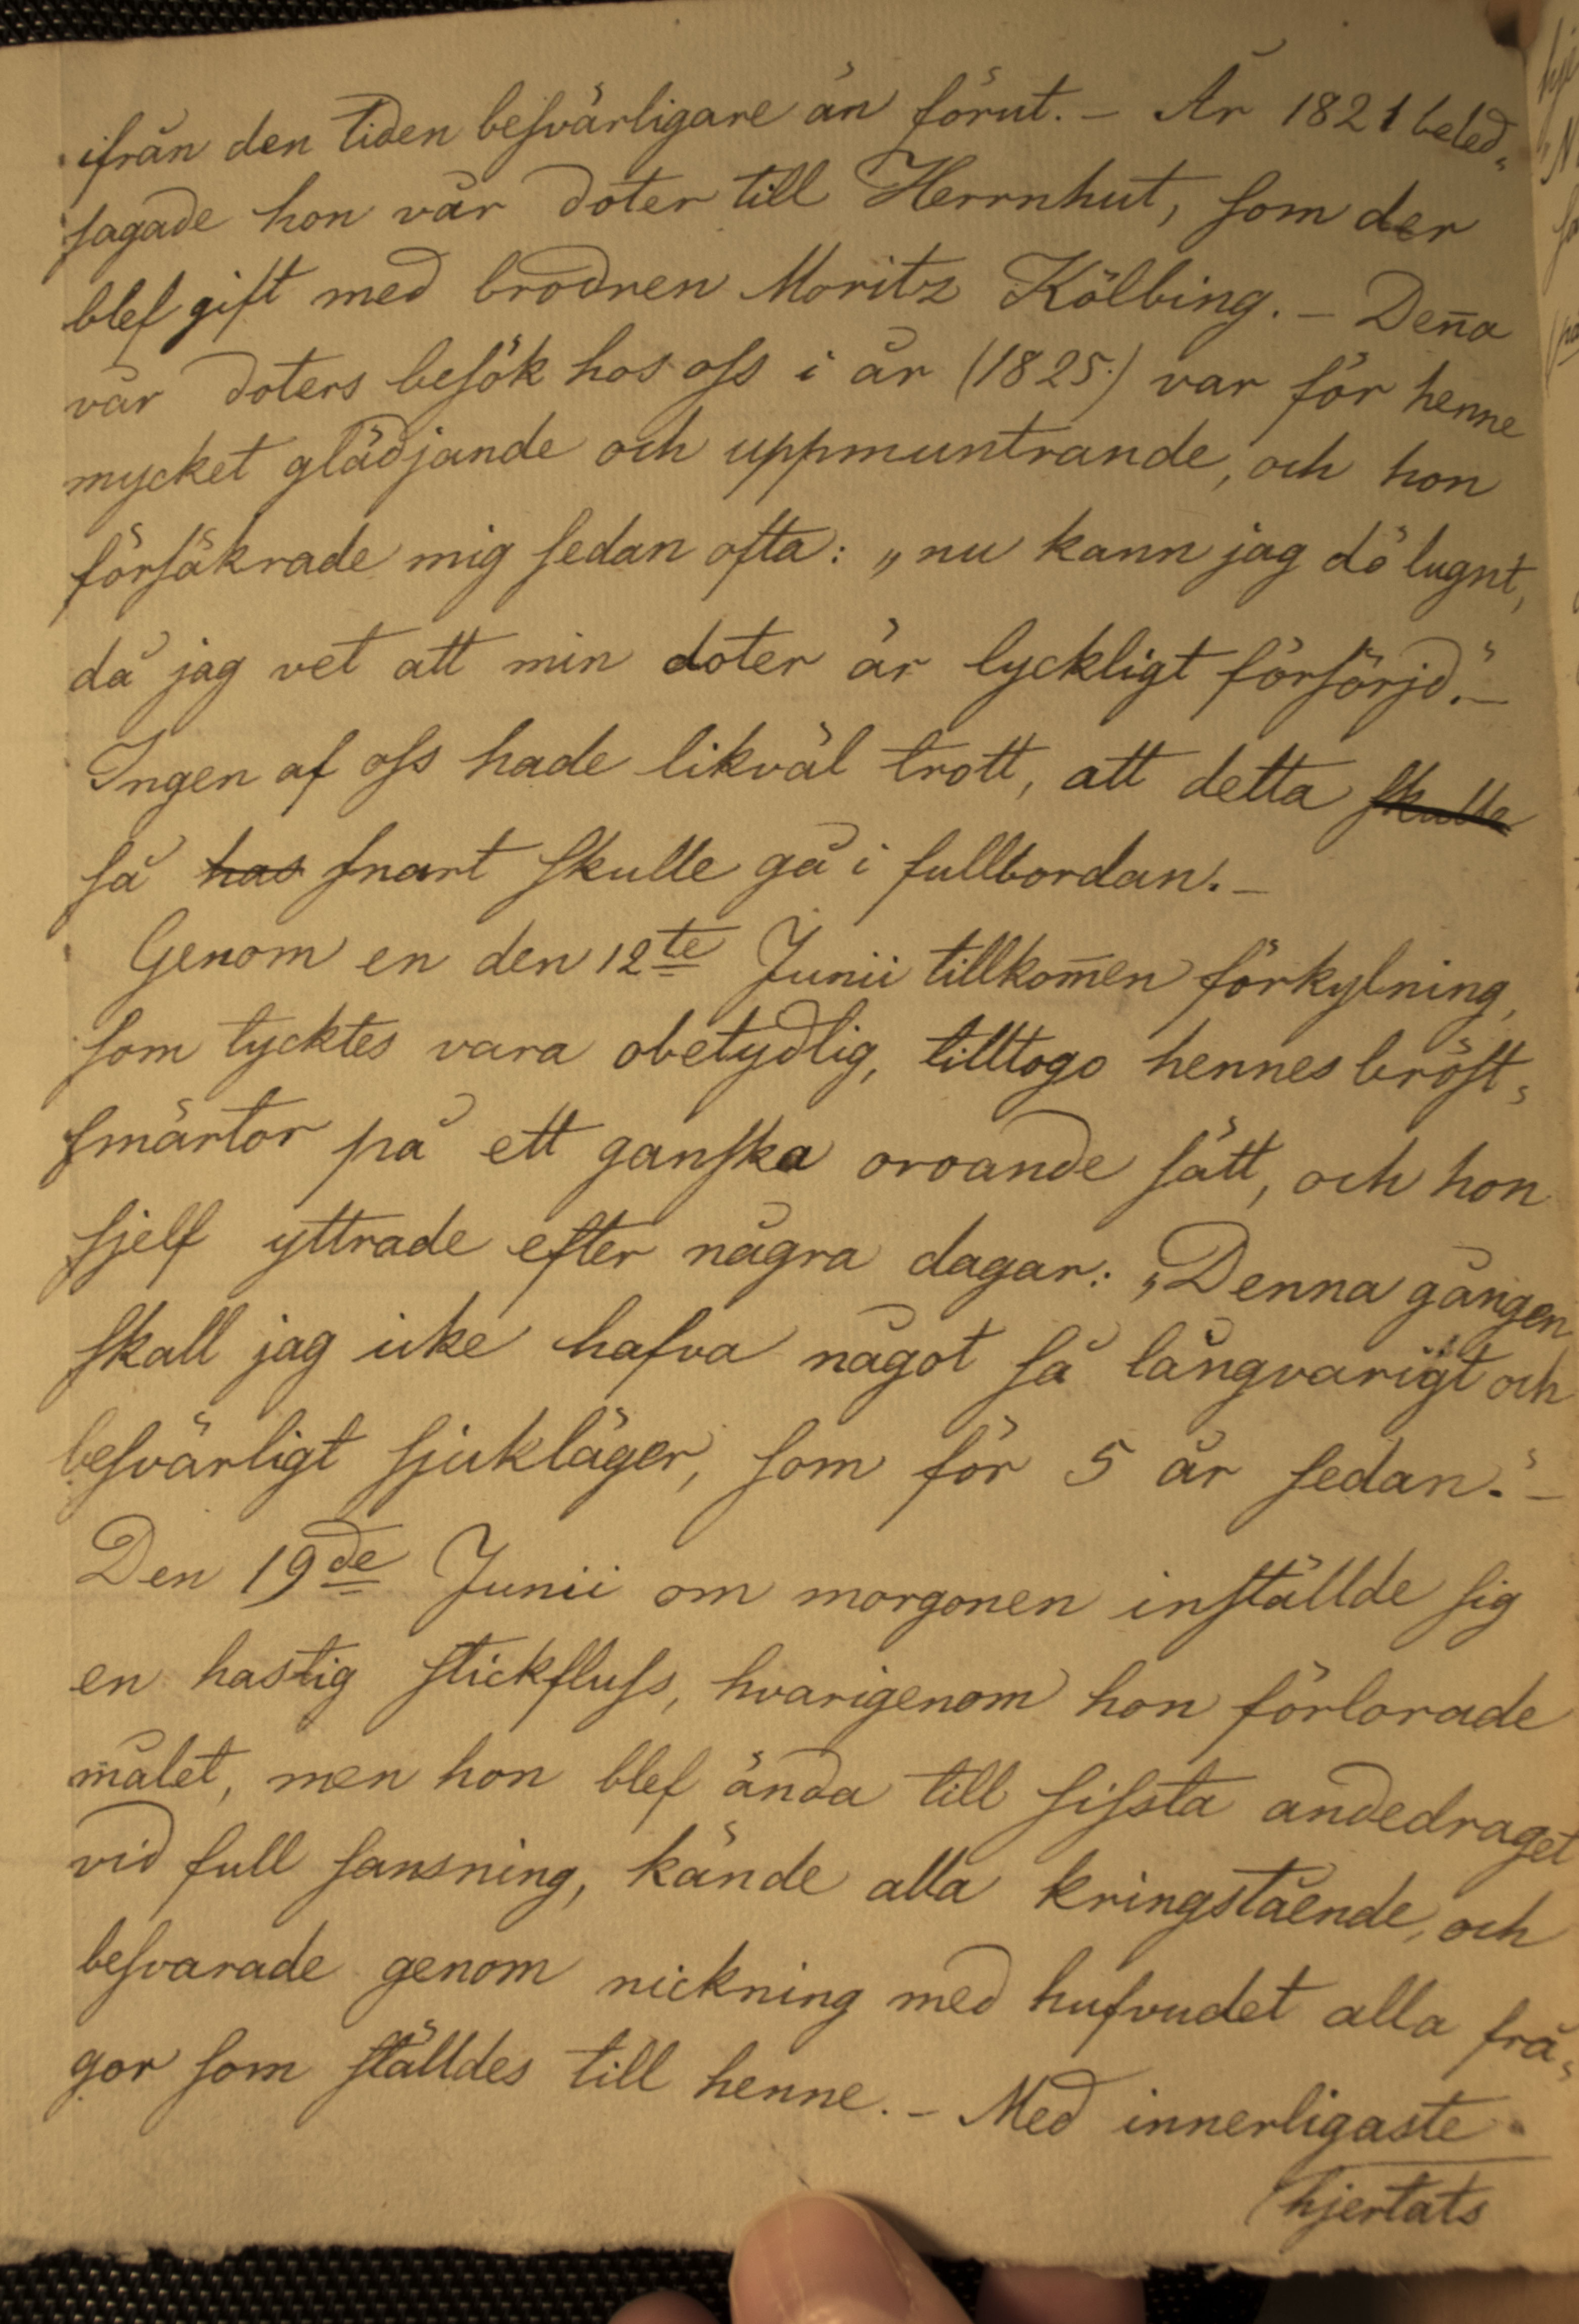 ifrån den tiden besvärligare än förut. – År 1821 beled„
sagade hon vår doter till Herrnhut, som der
blef gift med brodren Moritz Kölbing. – Den̄a
vår doters besök hos oss i år (1825.) var för henne
mycket glädjande och uppmuntrande, och hon
försäkrade mig sedan ofta: „nu kann jag dö lugnt,
då jag vet att min doter är lyckligt försörjd.“ –
Ingen af oss hade likväl trott, att detta skulle
så has snart skulle gå i fullbordan. –
Genom en den 12te Junii tillkom̄en förkylning,
som tycktes vara obetydlig, tilltogo hennes bröst„
smärtor på ett ganska oroande sätt, och hon
sjelf yttrade efter några dagar: „Denna gången
skall jag icke hafva något så långvarigt och
besvärligt sjukläger, som för 5 år sedan.“ –
Den 19de Junii om morgonen inställde sig
en hastig stickfluss, hvarigenom hon förlorade
målet, men hon blef ända till sissta andedraget
vid full sansning, kände alla kringstående, och
besvarade genom nickning med hufvudet alla frå„
gor som ställdes till henne. – Med innerligaste
hjertats